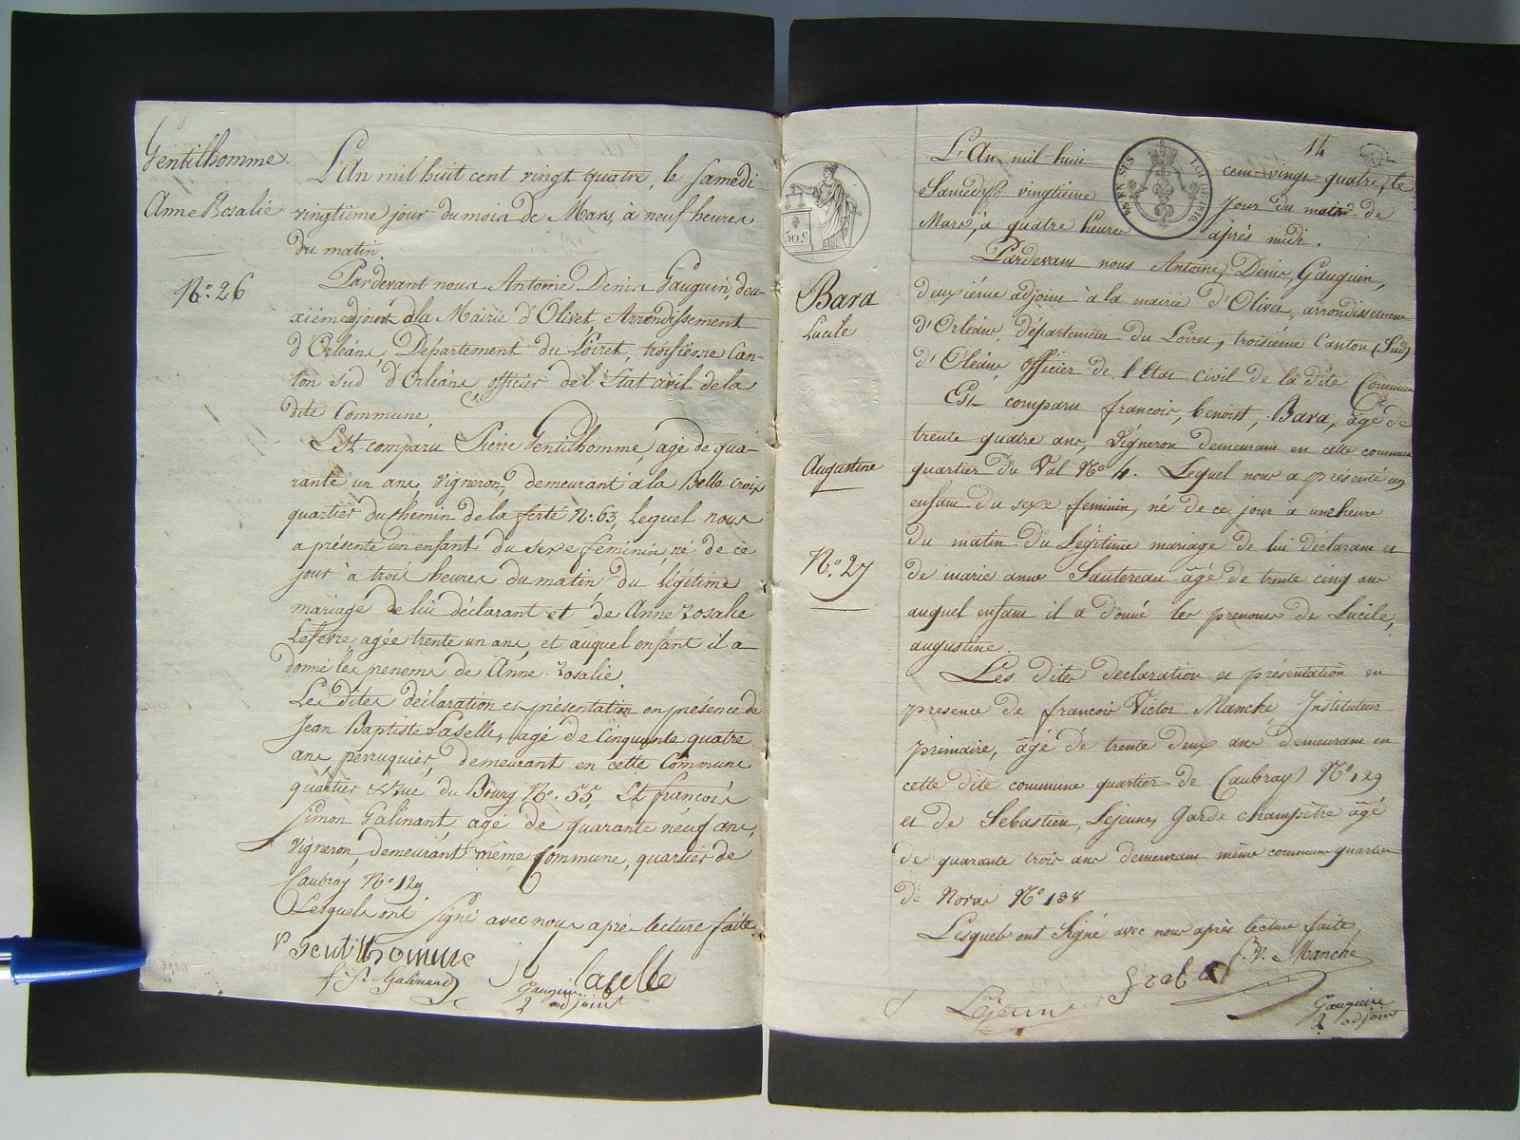 Gentilhomme
Anne Rosalie
N.º 26
L'An mil huit cent vingt quatre, le Samedi
vingtième jour du mois de Mars, à neuf heures
du matin.
Pardevant nous Antoine Denis Gauguin, deu-
xième adjoint à la Mairie d'Olivet Arrondissement
d'Orléans, Département du Loiret, troisième Can-
ton Sud d'Orléans, officier de l'État civil de la
dite Commune.
Est comparu Pierre Gentilhomme, agé de qua-
rante un ans vigneron, demeurant à la Belle Croix
quartier du chemin de la ferté N.º 63, lequel nous
a présenté un enfant du sexe féminin, né de ce
jour à trois heures du matin du légitime
mariage de lui déclarant et de Anne rosalie
Lefevre agée trente un ans, et auquel enfant il a
donné les prenoms de Anne rosalie.
Les dites déclaration et présentation en présence de
Jean Baptiste Laselle, agé de Cinquante quatre
ans perruquier, demeurant en cette Commune
quartier rue du Bourg N.º 55, Et francois
Simon Galinant agé de quarante neuf ans,
vigneron, demeurant même Commune, quartier de
Caubray N.º 129
Lesquels ont signé avec nous après lecture faite.
P gentilhomme
f. S. Galinand
lacelle
Gauguin
2 adjoint
14
50 c
Bara
Lucile
Augustine
N.º 27
L'An mil huit cent vingt quatre, le
Samedi vingtième jour du mois de
Mars, à quatre heures après midi.
Pardevant nous Antoine, Denis, Gauguin,
deuxiéme adjoint à la mairie d'Olivet, arrondissement
d'Orléans, département du Loiret, troisiéme Canton (Sud)
d'Oléans officier de l'Etat civil de la dite Commune
Est comparu francois, benoist, Bara, âgé de
trente quatre ans, Vigneron demeurant en cette commune
quartier du Val N.º 4. Lequel nous a présenté un
enfant du sexe féminin, né de ce jour a une heure
du matin du Légitime mariage de lui déclarant et
de marie anne Sautereau âgé de trente cinq ans
auquel enfant il a donné les prenoms de Lucile,
augustine.
Les dites declaration et présentation en
presence de francois Victor Manche, Instituteur
primaire, âgé de trente deux ans demeurant en
cette dite commune quartier de Caubray N.º 129
et de Sebastien, Lejeune, Garde champêtre âgé
de quarante trois ans demeurant même commune quartier
de Noras N.º 138
Lesquels ont Signé avec nous après lecture faite
f. V. Manche
Lejeune
Gauguin
2 adjoint